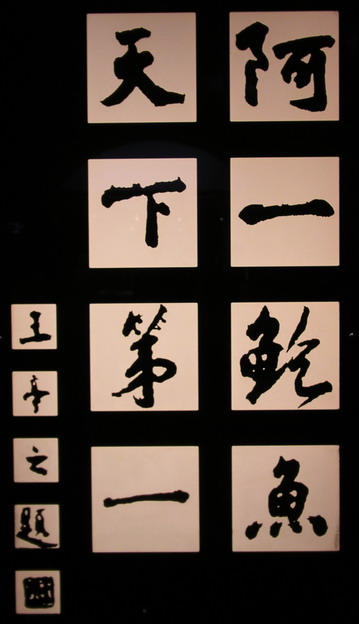 阿一鮑魚
天下第一
王亭之題